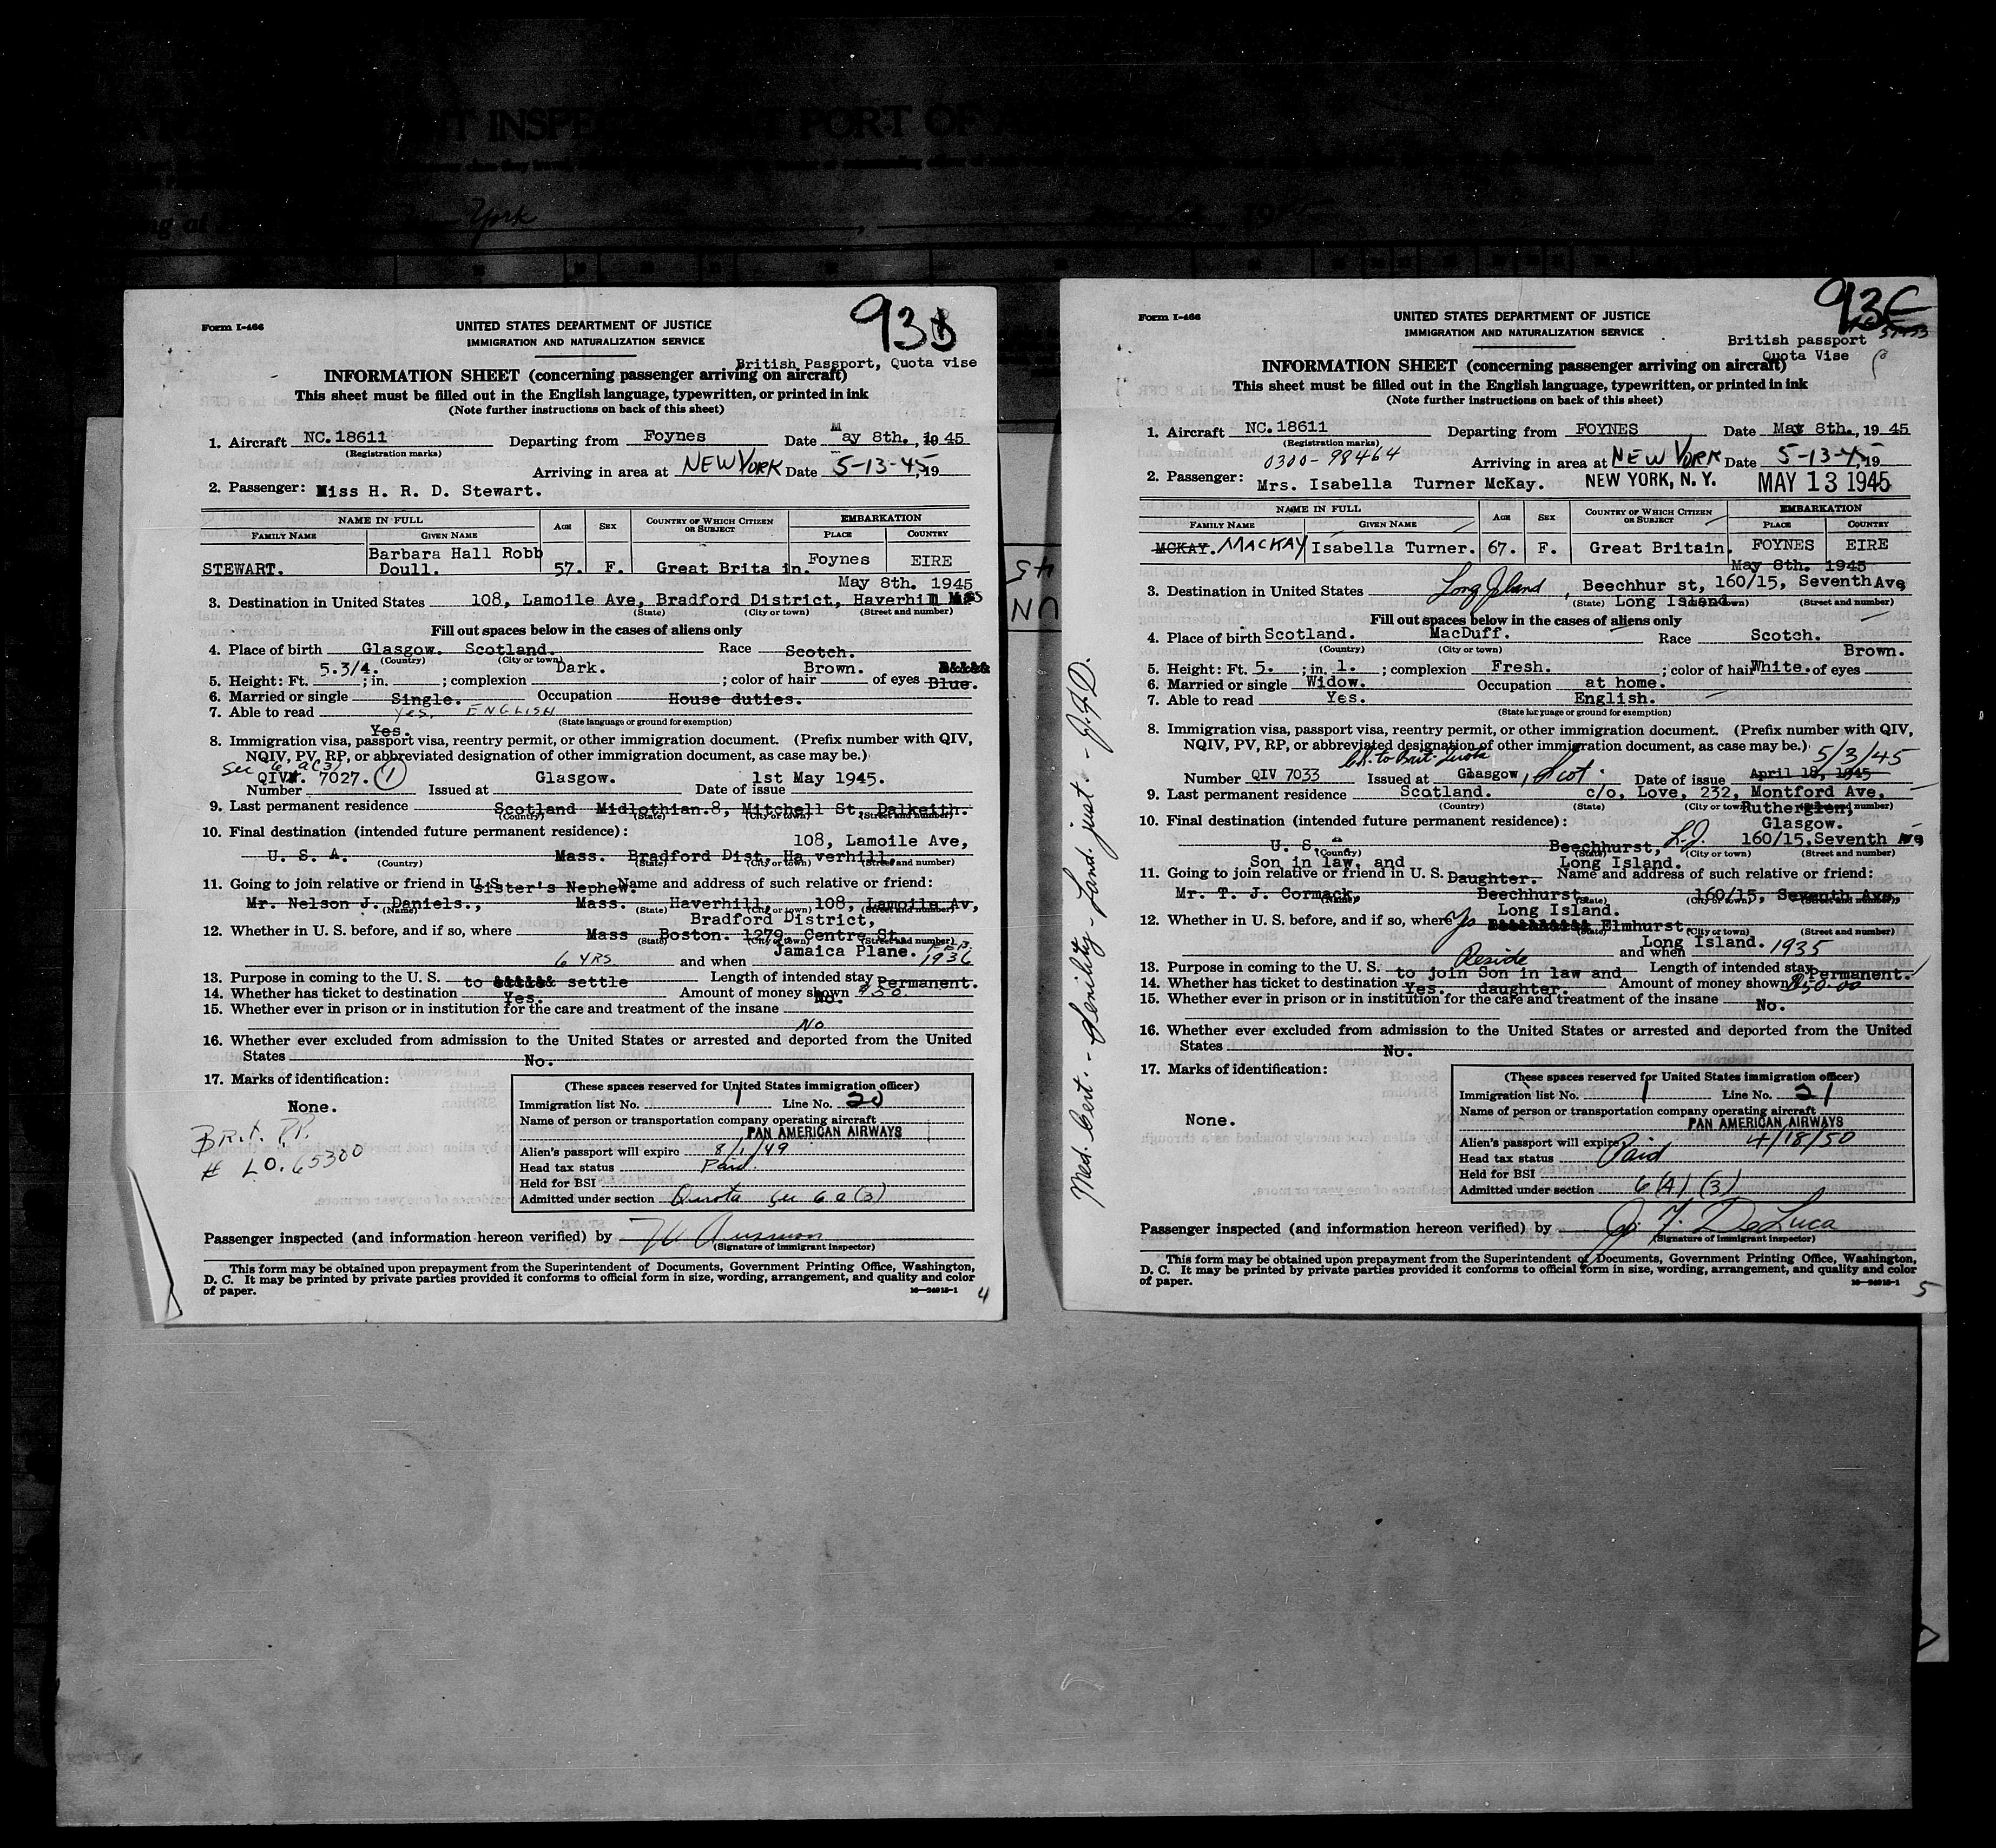 INSPE
PORT OF
York
93D
Form I-466
UNITED STATES DEPARTMENT OF JUSTICE
IMMIGRATION AND NATURALIZATION SERVICE
British Passport, Quota vise
INFORMATION SHEET (concerning passenger arriving on aircraft)
This sheet must be filled out in the English language, typewritten, or printed in ink
(Note further instructions on back of this sheet)
1. Aircraft NC.18611 Departing from Foynes Date May 8th., 1945
(Registration marks)
Arriving in area at NEW YORK Date 5-13-45, 19
2. Passenger: Miss H. R. D. Stewart.
NAME IN FULL AGE SEX COUNTRY OF WHICH CITIZEN OR SUBJECT EMBARKATION
FAMILY NAME GIVEN NAME PLACE COUNTRY
STEWART. Barbara Hall Robb Doull. 57. F. Great Brita in. Foynes EIRE
May 8th. 1945
3. Destination in United States 108, Lamoile Ave, Bradford District, Haverhill Mass
(State) (City or town) (Street and number)
Fill out spaces below in the cases of aliens only
4. Place of birth Glasgow. Scotland. Race Scotch.
(Country) (City or town)
5. Height: Ft. 5.3/4. ; in. ; complexion Dark. ; color of hair Brown. of eyes Blue.
6. Married or single Single. Occupation House duties.
7. Able to read Yes, ENGLISH
(State language or ground for exemption)
Yes.
8. Immigration visa, passport visa, reentry permit, or other immigration document. (Prefix number with QIV,
NQIV, PV, RP, or abbreviated designation of other immigration document, as case may be.)
Sec 6 a(3)
Number QIV. 7027. 1 Issued at Glasgow. Date of issue 1st May 1945.
9. Last permanent residence Scotland Midlothian.8, Mitchell St, Dalkeith.
(Country) (State) (City or town) (Street and number)
10. Final destination (intended future permanent residence):
108, Lamoile Ave,
U. S. A. Mass. Bradford Dist, Ha verhill,
(Country) (State) (City or town) (Street and number)
11. Going to join relative or friend in U. S. Sister's Nephew. Name and address of such relative or friend:
Mr. Nelson J. Daniels., Mass. Haverhill, 108, Lamoile Av,
(Name) (State) (City or town) (Street and number)
Bradford District,
12. Whether in U. S. before, and if so, where Mass Boston. 1279, Centre St
(State) (City or town) (Street and number)
Jamaica Plane.
6 YRS and when FEB. 1936
13. Purpose in coming to the U. S. to settle Length of intended stay Permanent.
14. Whether has ticket to destination Yes. Amount of money shown $50.
No.
15. Whether ever in prison or in institution for the care and treatment of the insane
No
16. Whether ever excluded from admission to the United States or arrested and deported from the United
States No.
17. Marks of identification:
None.
BRIT. PP.
# LO. 65300
(These spaces reserved for United States immigration officer)
Immigration list No. 1 Line No. 20
Name of person or transportation company operating aircraft
PAN AMERICAN AIRWAYS
Alien's passport will expire 8/1/49
Head tax status Paid.
Held for BSI
Admitted under section Quota Sec 6 a (3)
Passenger inspected (and information hereon verified) by
(Signature of immigrant inspector)
This form may be obtained upon prepayment from the Superintendent of Documents, Government Printing Office, Washington,
D. C. It may be printed by private parties provided it conforms to official form in size, wording, arrangement, and quality and color
of paper.
16—24915-1
4
93E
Form I-466
UNITED STATES DEPARTMENT OF JUSTICE
IMMIGRATION AND NATURALIZATION SERVICE
British passport
Quota Vise
INFORMATION SHEET (concerning passenger arriving on aircraft)
This sheet must be filled out in the English language, typewritten, or printed in ink
(Note further instructions on back of this sheet)
1. Aircraft NC.18611 Departing from FOYNES Date May 8th., 1945
(Registration marks)
0300-98464
Arriving in area at NEW YORK Date 5-13-45, 19
2. Passenger: Mrs. Isabella Turner McKay. NEW YORK, N. Y. MAY 13 1945
NAME IN FULL AGE SEX COUNTRY OF WHICH CITIZEN OR SUBJECT EMBARKATION
FAMILY NAME GIVEN NAME PLACE COUNTRY
MCKAY. MACKAY Isabella Turner. 67. F. Great Britain. FOYNES EIRE
May 8th. 1945
3. Destination in United States Long Island, Beechhur st, 160/15, Seventh Ave
Long Island
(State) (City or town) (Street and number)
Fill out spaces below in the cases of aliens only
4. Place of birth Scotland. MacDuff. Race Scotch.
(Country) (City or town)
Brown.
5. Height: Ft. 5. ; in. 1. ; complexion Fresh. ; color of hair White. of eyes
6. Married or single Widow. Occupation at home.
7. Able to read Yes. English.
(State language or ground for exemption)
8. Immigration visa, passport visa, reentry permit, or other immigration document. (Prefix number with QIV,
NQIV, PV, RP, or abbreviated designation of other immigration document, as case may be.)
Ch. to Brit. Quota 5/3/45
Number QIV 7033 Issued at Glasgow, Scot. Date of issue April 18, 1945
9. Last permanent residence Scotland. c/o, Love, 232, Montford Ave,
(Country) (State) (City or town) (Street and number)
Rutherglen,
Glasgow.
10. Final destination (intended future permanent residence):
U. S. Beechhurst, L.I. 160/15, Seventh Ave
(Country) (State) (City or town) (Street and number)
Son in law, and Long Island.
11. Going to join relative or friend in U. S. Daughter. Name and address of such relative or friend:
Mr. T. J. Cormack, Beechhurst, 160/15, Seventh Ave,
(Name) (State) (City or town) (Street and number)
Long Island.
12. Whether in U. S. before, and if so, where Yes Elmhurst,
(State) (City or town) (Street and number)
Long Island.
and when 1935
Reside
13. Purpose in coming to the U. S. to join Son in law and Length of intended stay Permanent.
14. Whether has ticket to destination Yes. daughter. Amount of money shown $50.00
15. Whether ever in prison or in institution for the care and treatment of the insane No.
16. Whether ever excluded from admission to the United States or arrested and deported from the United
States No.
17. Marks of identification:
None.
(These spaces reserved for United States immigration officer)
Immigration list No. 1 Line No. 21
Name of person or transportation company operating aircraft
PAN AMERICAN AIRWAYS
Alien's passport will expire 4/18/50
Head tax status Paid
Held for BSI
Admitted under section 6 (A) (3)
Passenger inspected (and information hereon verified) by J. F. DeLuca
(Signature of immigrant inspector)
This form may be obtained upon prepayment from the Superintendent of Documents, Government Printing Office, Washington,
D. C. It may be printed by private parties provided it conforms to official form in size, wording, arrangement, and quality and color
of paper.
16—24915-1
5
Med. Cert. - Senility - Land. just. - J.F.D.